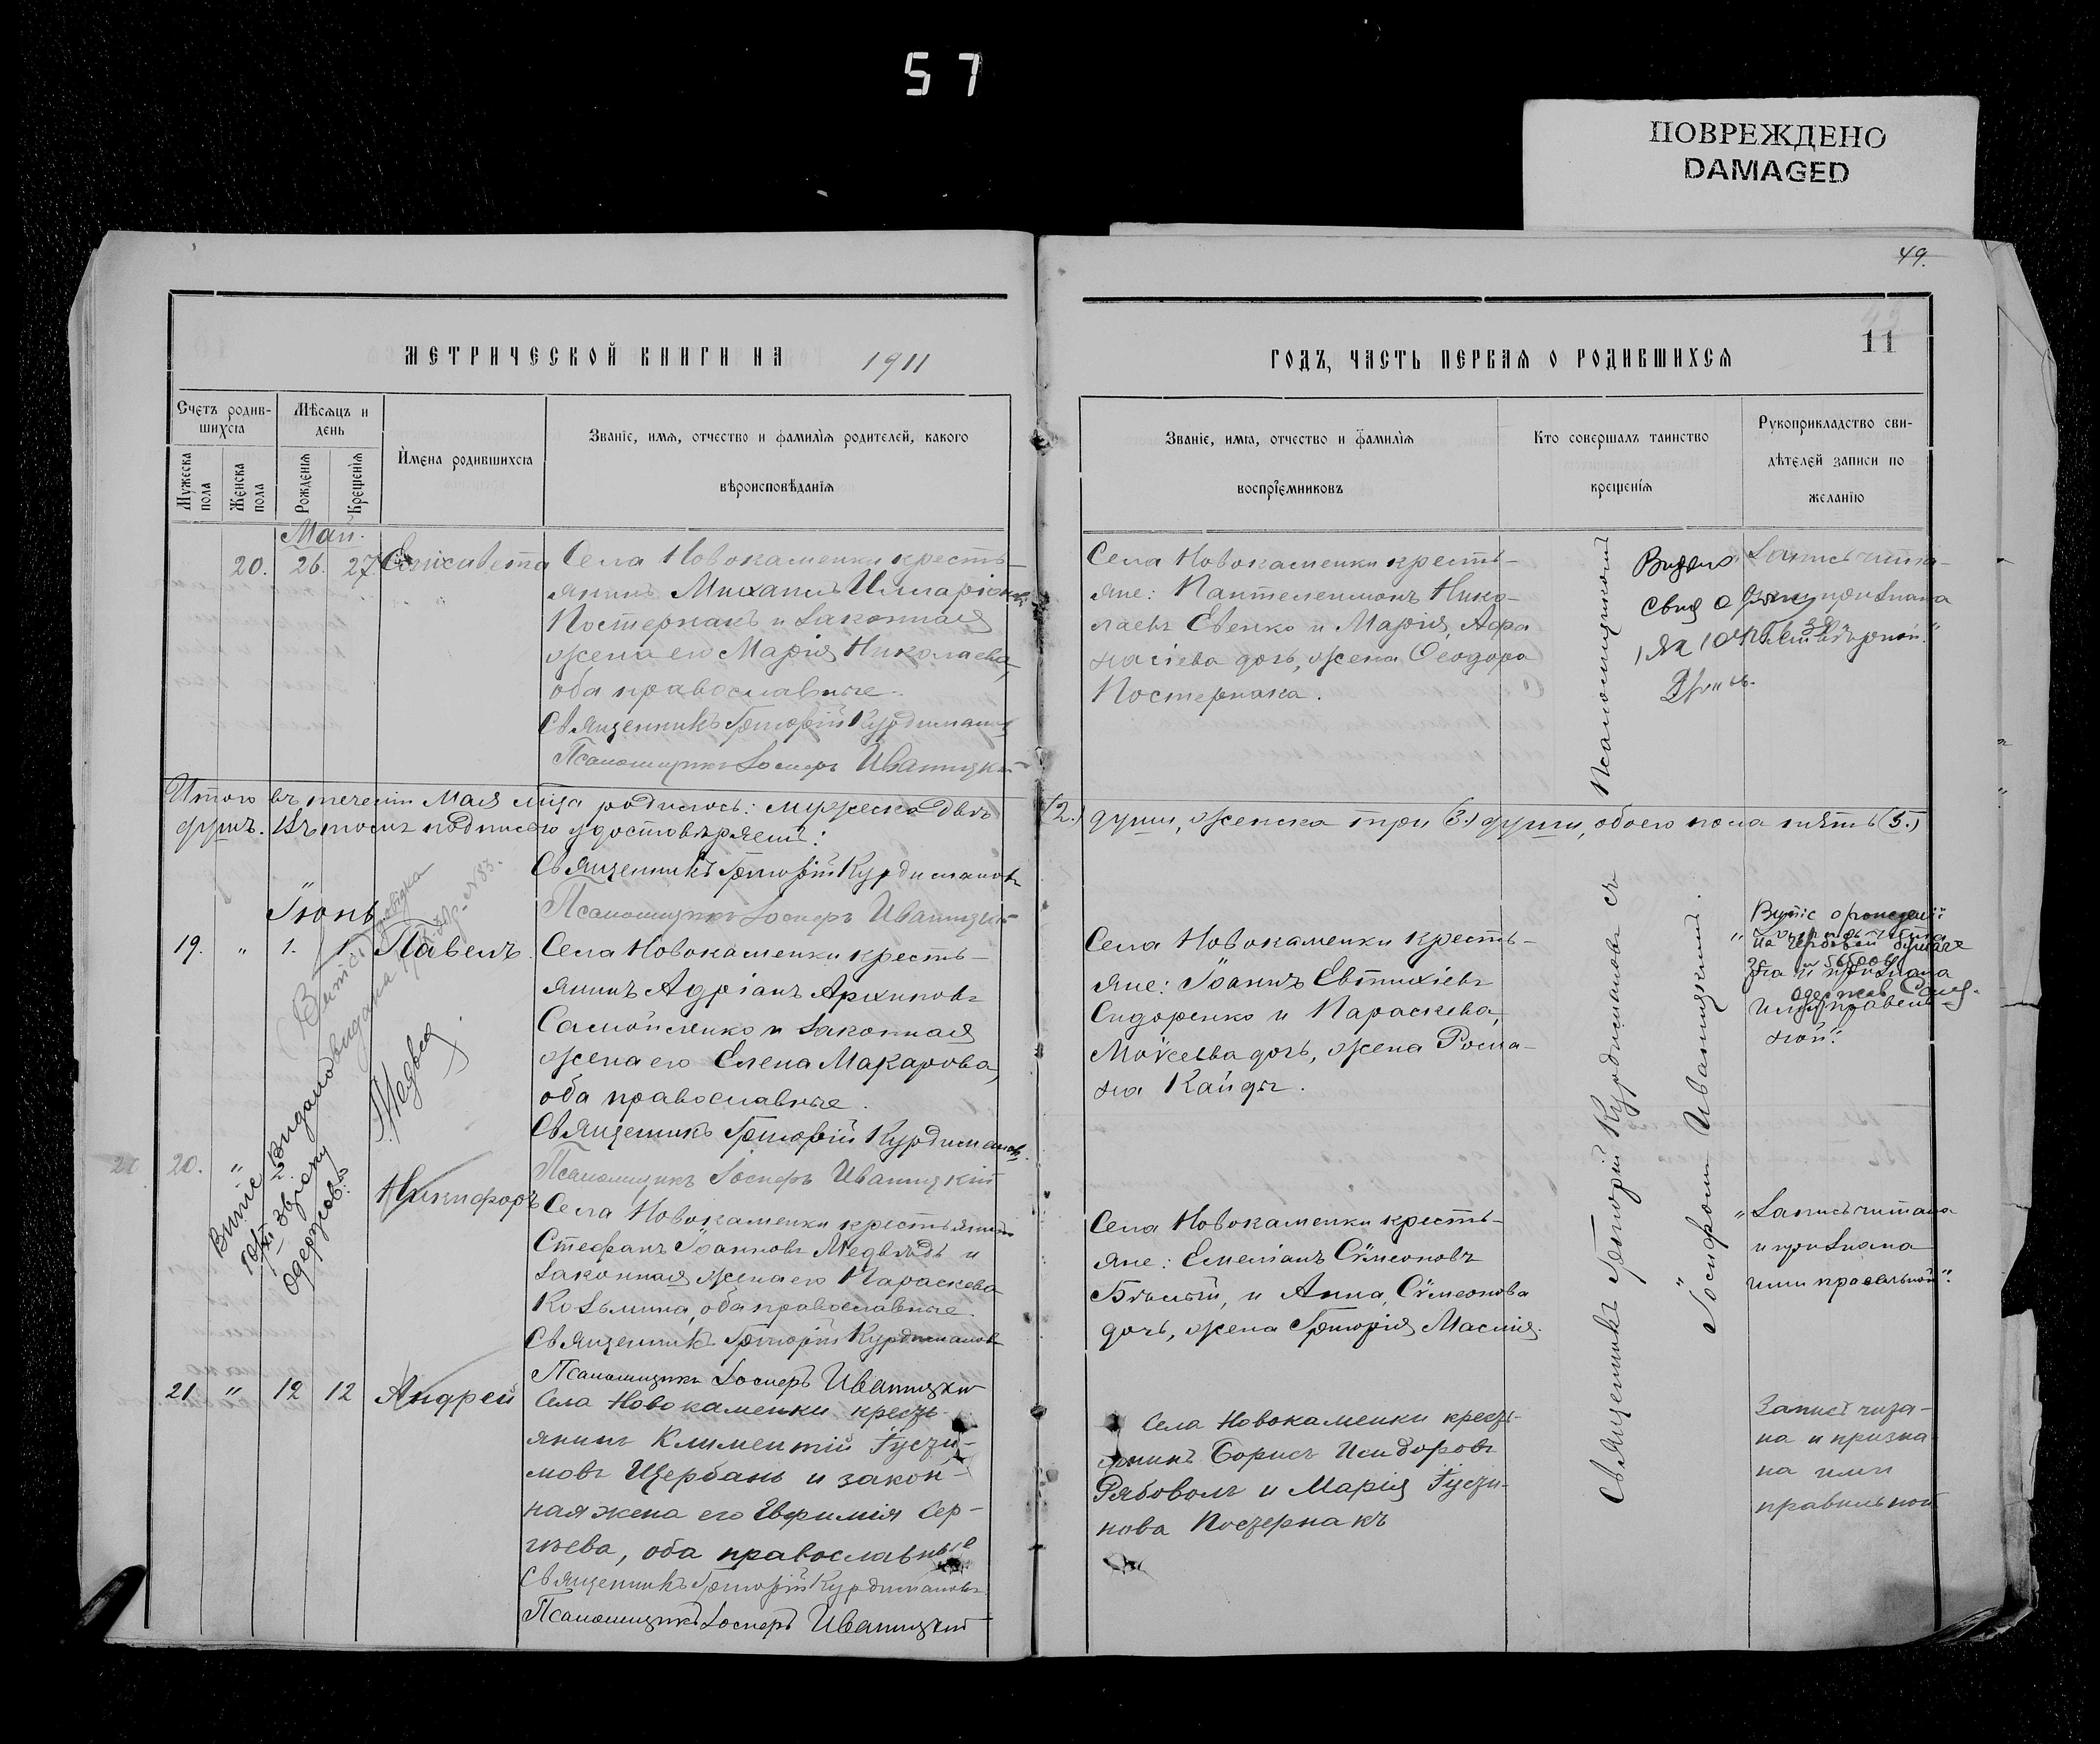 57
ПОВРЕЖДЕНО
DAMAGED
49.
11
МЕТРИЧЕСКОЙ КНИГИ НА 1911
ГОДЪ, ЧАСТЬ ПЕРВАЯ О РОДИВШИХСЯ
Счетъ родив-
шихся
Мужеска
пола
Женска
пола
Мѣсяцъ и
день
Рожденія
Крещенія
Имена родившихся
Званіе, имя, отчество и фамилія родителей, какого
вѣроисповѣданія
Званіе, имя, отчество и фамилія
воспріемниковъ
Кто совершалъ таинство
крещенія
Рукоприкладство сви-
дѣтелей записи по
желанію
Май.
20. 26. 27. Елисавета
Села Новокаменки кресть-
янинъ Михаилъ Иларіоновъ
Постернакъ и законная
жена его Марія Николаева,
оба православные.
Священникъ Григорій Курдимановъ
Псаломщикъ Іосифъ Иваницкій
Села Новокаменки кресть-
яне: Пантелеимонъ Нико-
лаевъ Евенко и Марія, Афа
насіева дочь, жена Ѳеодора
Постернака.
Запись чита-
на признана
Итого въ теченіи Мая м-ца родилось: мужеска двѣ (2.) души, женска три (3.) души, обоего пола пять (5.)
душъ. Въ чемъ подписью удостовѣряемъ:
Священникъ Григорій Курдимановъ
Псаломщикъ Іосифъ Иваницкій
Іюнь
19. " 1. 1. Павелъ.
Села Новокаменки кресть-
янинъ Адріанъ Архиповъ
Самойленко и законная
жена его Елена Макарова,
оба православные.
Священникъ Григорій Курдимановъ.
Псаломщикъ Іосифъ Иваницкій
Села Новокаменки кресть-
яне: Іоаннъ Евтихіевъ
Сидоренко и Параскева,
Моѵсеева дочь, жена Рома-
на Кайды.
20. " Никифоръ
Села Новокаменки крестьянинъ
Стефанъ Іоанновъ Медвѣдь и
законная жена его Параскева
Козьмина, оба православные.
Священникъ Григорій Курдимановъ
Псаломщикъ Іосифъ Иваницкій
Села Новокаменки кресть-
яне: Емеліанъ Сѵмеоновъ
Бѣлый, и Анна, Сѵмеонова
дочь, жена Григорія Маслія.
"Запись читана
и признана
ими правильной".
21 " 12 12 Андрей
Села Новокаменки кресть-
янинъ Климентій Густи-
новъ Щербань и закон-
ная жена его Евфимія Сер-
гѣева, оба православные
Священникъ Григорій Курдимановъ
Псаломщикъ Іосифъ Иваницкій
Села Новокаменки кресть-
янинъ Борисъ Исидоровъ
Рябоволъ и Марія Густи-
нова Постернакъ
Запись чита-
на и призна
на ими
правильной
Священникъ Григорій Курдимановъ съ Псаломщикомъ
Іосифомъ Иваницкимъ.